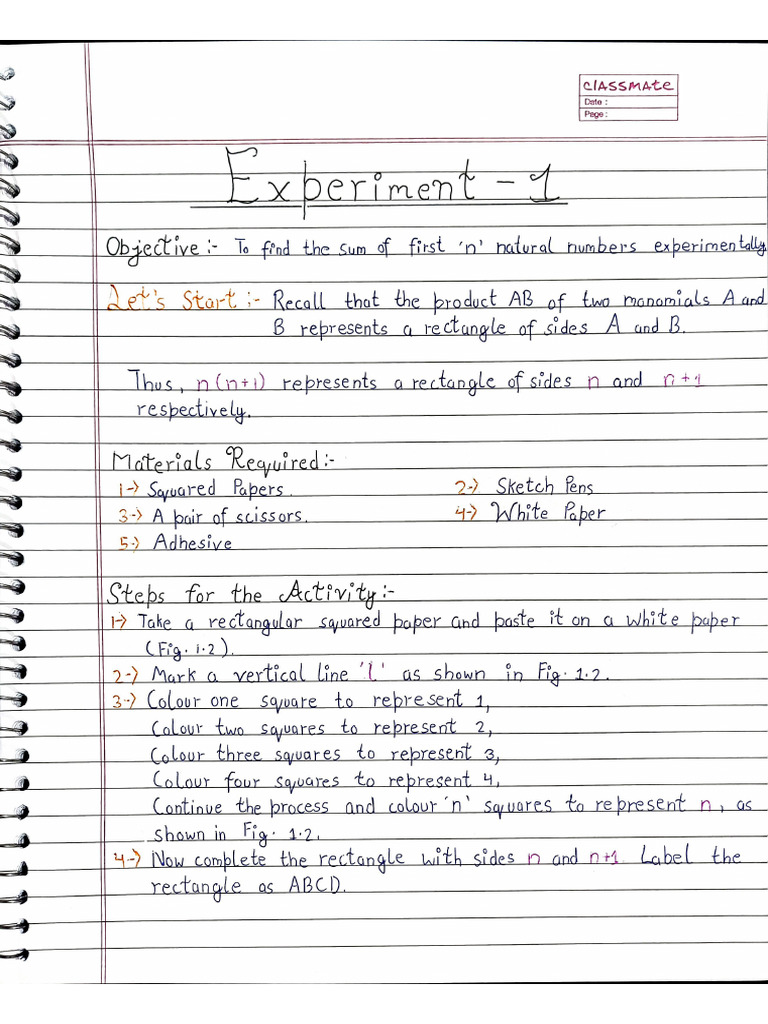 CLASSMATE
Date :
Page :
Experiment - 1
Objective :- To find the sum of first 'n' natural numbers experimentally
Let's Start :- Recall that the product AB of two monomials A and
B represents a rectangle of sides A and B.
Thus, n(n+1) represents a rectangle of sides n and n+1
respectively.
Materials Required :-
1-> Squared Papers. 2-> Sketch Pens
3-> A pair of scissors. 4-> White Paper
5-> Adhesive
Steps for the Activity :-
1-> Take a rectangular squared paper and paste it on a white paper
(Fig. 1.2).
2-> Mark a vertical line 'l' as shown in Fig. 1.2.
3-> Colour one square to represent 1,
Colour two squares to represent 2,
Colour three squares to represent 3,
Colour four squares to represent 4,
Continue the process and colour 'n' squares to represent n, as
shown in Fig. 1.2.
4-> Now complete the rectangle with sides n and n+1. Label the
rectangle as ABCD.